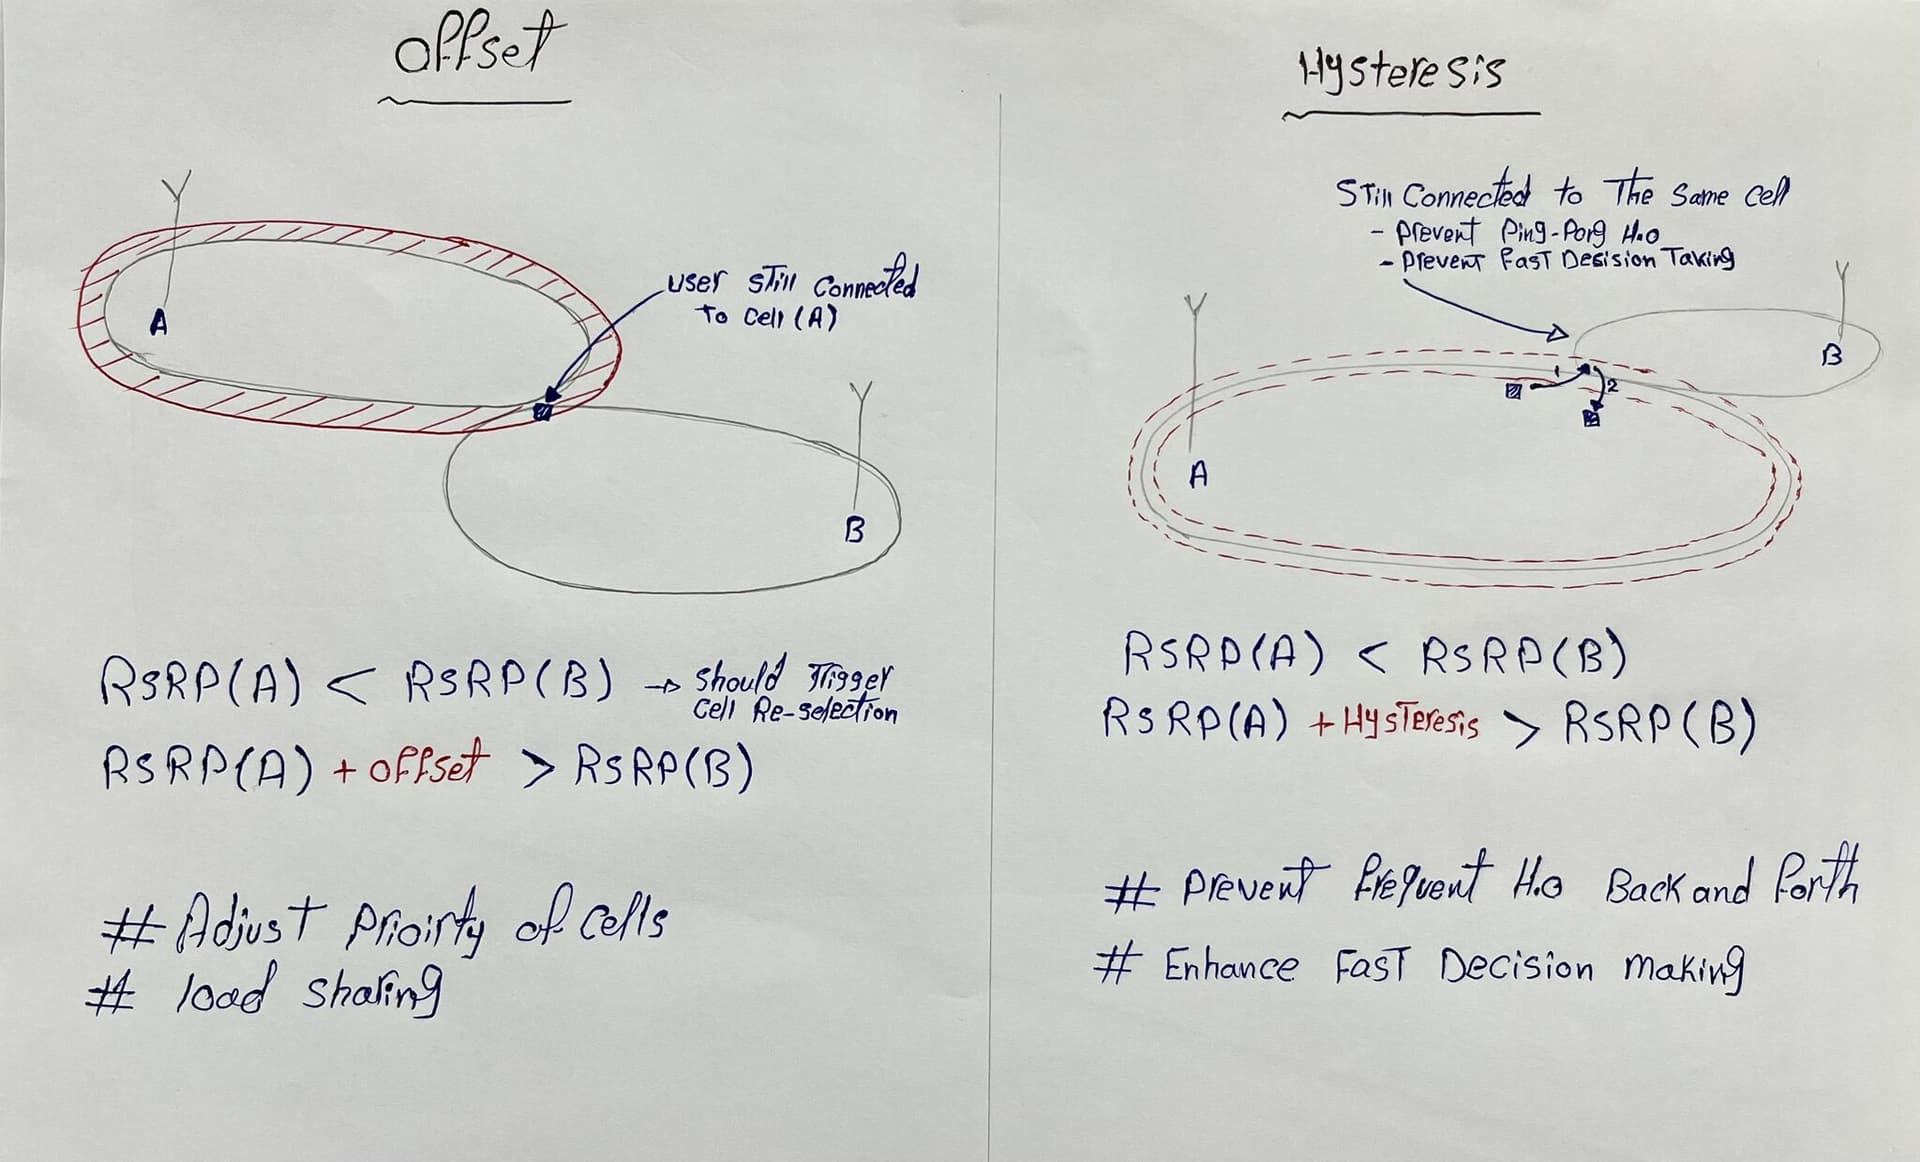 Offset
A
user still connected
to cell (A)
B
RSRP(A) < RSRP(B) → should Trigger
Cell Re-selection
RSRP(A) + offset > RSRP(B)
# Adjust Prioirty of cells
# load sharing
Hysteresis
Still Connected to The Same cell
- Prevent Ping-Pong H.o
- Prevent Fast Desision Taking
B
1
2
A
RSRP(A) < RSRP(B)
RSRP(A) + Hysteresis > RSRP(B)
# Prevent frequent H.o Back and forth
# Enhance Fast Decision making